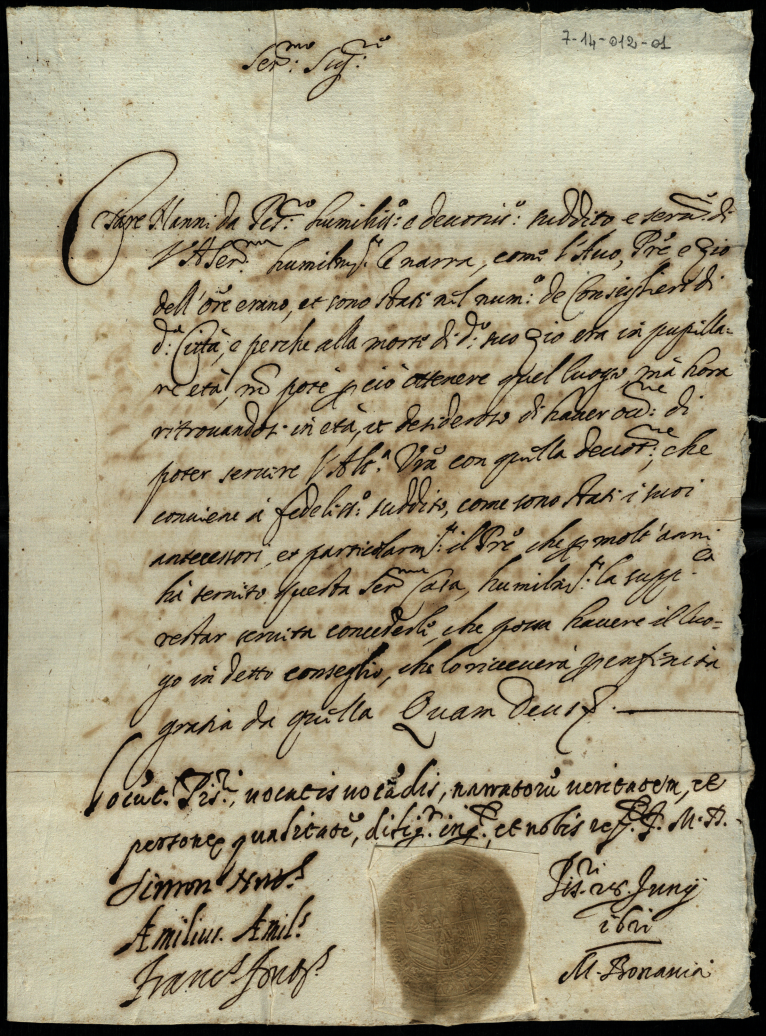 7-14-012-01
Ser.mo Sig.re
Cesare Hanni da Pes.ro humiliss.o e devotiss.o suddito e serv.re di
V A Ser.ma humilm.te le narra, come l'Avo, P̃re e Zio
dell'ore erano, et sono stati nel num.o de Conseglieri di
d.a Città, e perche alla morte di d.o suo Zio era in pupilla=
re età, nõ poté p̱ ciò ottenere quel luogo, mà hora
ritrovandosi in età, et desideroso di haver occ.ne di
poter servire l'Alt.a Vr̃a con quella devot.ne, che
conviene à fedeliss.o suddito, come sono stati i suoi
antecessori, et particolarm.te il P̃re che p̱ molt'anni
hà servito questa Ser.ma Casa, humilm.te la supp.ca
restar servita concederli, che possa havere il luo=
go in detto conseglio, che lo riceverà p̱ infinita
gratia da quella Quam Deus &.
Locut. Pis.ri, vocatis vocãdis, narratorũ veritatem, et
personeq qualitatẽ, dilig.r inq.t, et nobis ref.t J. M. D.
Simon
Æmilius Æmil.s
Franc.s
Pis.ri 28 Junij
1621
M. Bonavia